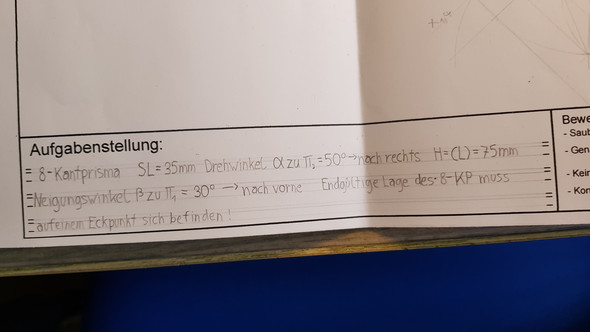 Aufgabenstellung:
8-Kantprisma SL=35mm Drehwinkel α zu π₃=50°→nach rechts H=(L)=75mm
Neigungswinkel β zu π₁=30° → nach vorne Endgültige Lage des 8-KP muss
auf einem Eckpunkt sich befinden!
Bewe
- Saub
- Gen
- Kei
- Kor